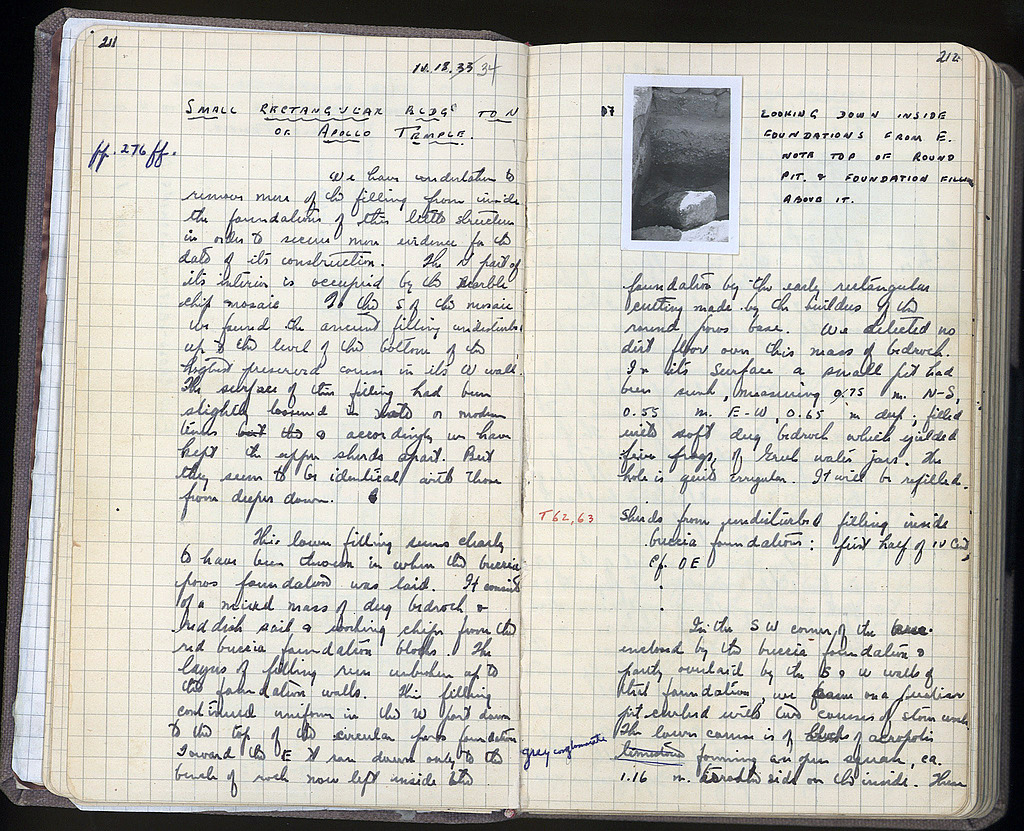 211
IV. 18. 33/34
SMALL RECTANGULAR BLDG TO N
OF APOLLO TEMPLE.
pp. 276 ff.
We have undertaken to
remove more of the filling from inside
the foundations of this little structure
in order to secure more evidence for the
date of its construction. The N part of
its interior is occupied by the marble
chip mosaic. To the S of the mosaic
we found the ancient filling undisturbed
up to the level of the bottom of the
highest preserved course in its W wall.
The surface of this filling had been
slightly loosened in or modern
times but the & accordingly we have
kept the upper sherds apart. But
they seem to be identical with those
from deeper down.
This lower filling seems clearly
to have been thrown in when the breccia
poros foundation was laid. It consists
of a mixed mass of dug bedrock &
reddish soil & working chips from the
red breccia foundation blocks. The
layers of filling run unbroken up to
the foundation walls. This filling
continued uniform in the W part down
to the top of the circular poros foundation
Toward the E it ran down only to the
bench of rock now left inside the
212
D7
LOOKING DOWN INSIDE
FOUNDATIONS FROM E.
NOTE TOP OF ROUND
PIT. & FOUNDATION FILLING
ABOVE IT.
foundation by the early rectangular
cutting made by the builders of the
round poros base. We detected no
dirt floor over this mass of bedrock.
In its surface a small pit had
been sunk, measuring 0.75 m. N-S,
0.55 m. E-W, 0.65 m deep; filled
with soft dug bedrock which yielded
frags. of Greek water jars. The
hole is quite irregular. It will be refilled.
T 62, 63
Sherds from undisturbed filling inside
breccia foundations: first half of IV Cent,
Cf. OE
In the SW corner of the
enclosed by the breccia foundation &
partly overlaid by the S & W walls of
that foundation, we on a
pit curbed with two courses of stone
The lower course is of blocks of acropolis
grey conglomerate
limestone forming an open square, ca.
1.16 m. to the side on the inside. These